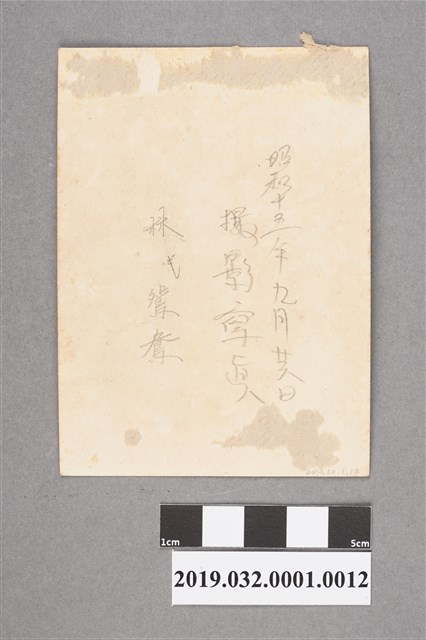 昭和十五年九月廿八日
撮影寫真
林氏鴛鴦
1cm
5cm
2019.032.0001.0012